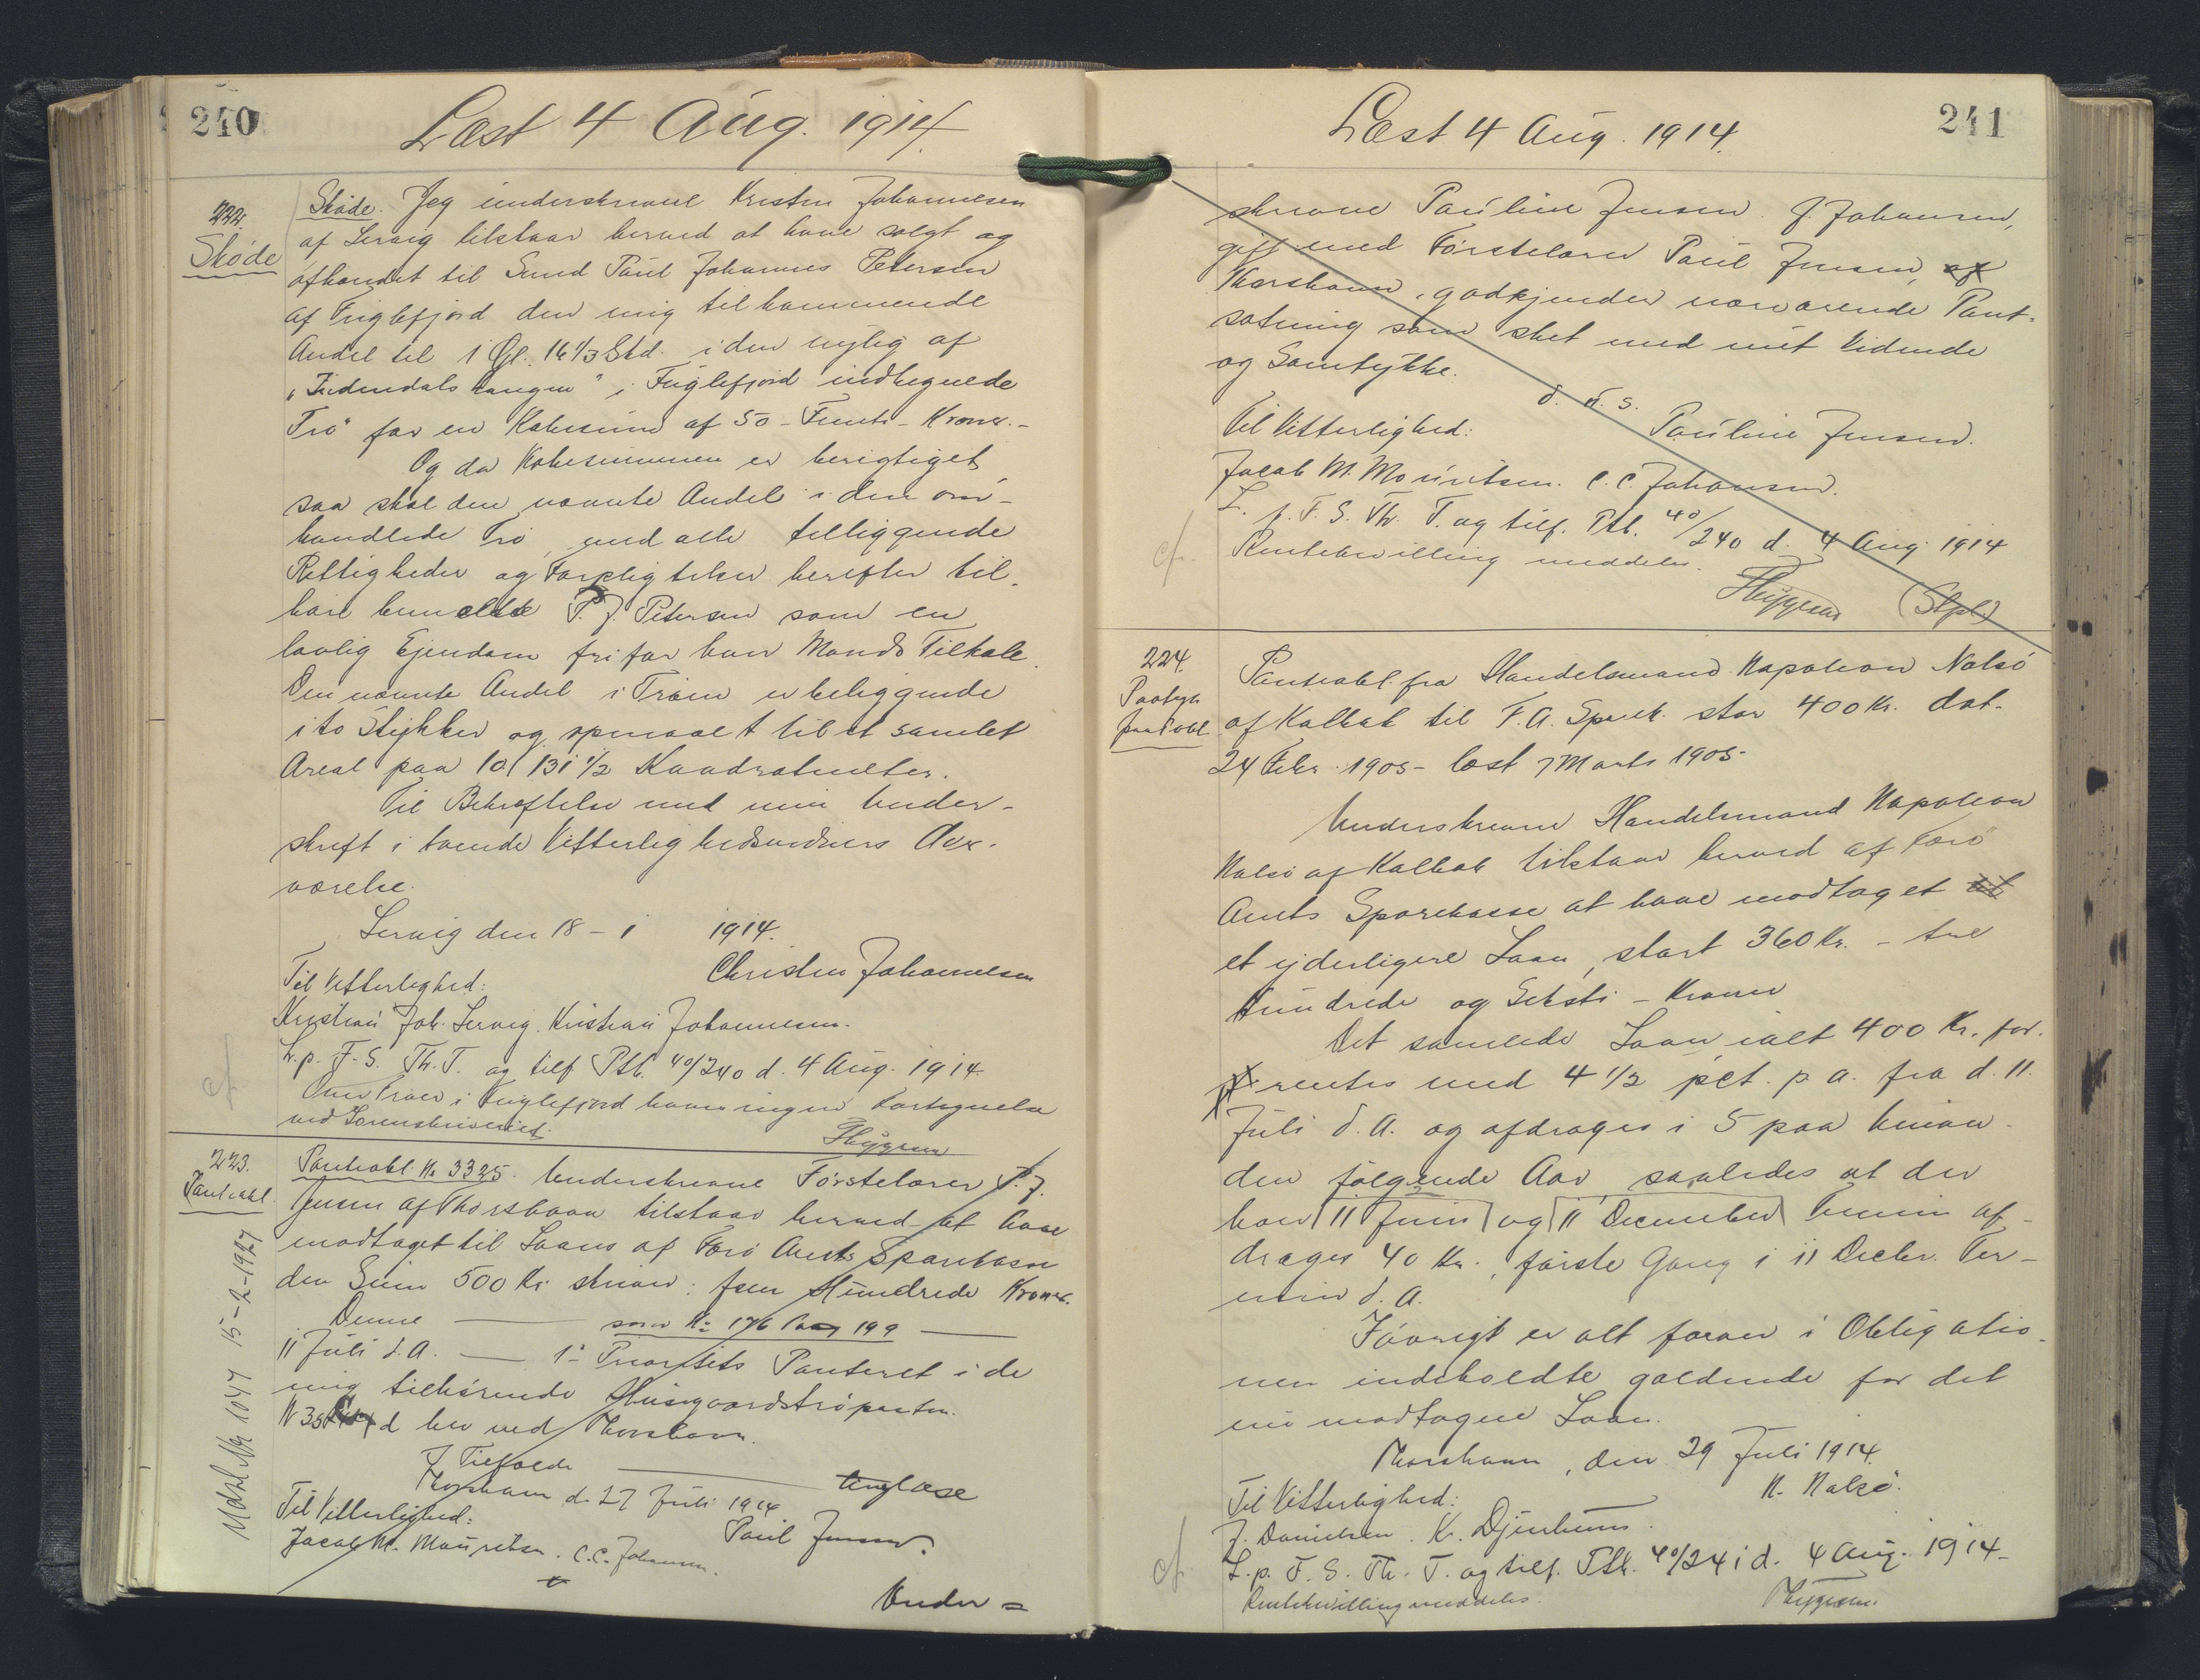 240
Læst 4 Aug. 1914.
222.
Skøde
Skøde. Jeg underskrevne Kristen Johannesen
af Lervig tilstaar herved at have solgt og
afhændet til Svend Paul Johannes Petersen
af Fuglefjord den mig tilkommende
Andel til 1 Gl. 16 1/3 Skd. i den nylig af
i Fuglefjord indhegnede
Trø" for en Købesum af 50 - Femti - Kroner. -
Og da Købesummen er berigtiget
saa skal den nævnte Andel i den om-
handlede Trø, med alle tilliggende
Rettigheder og Forpligtelser herefter til-
høre bemeldte P. J. Petersen som en
lovlig Ejendom fri for hver Mands Tiltale.
Den nævnte Andel i Trøen er beliggende
i to Stykker og opmaalt til et samlet
Areal paa 10,131 1/2 Kvadratmeter.
Til Bekræftelse med min Under-
skrift i tvende Vitterlighedsvidners Over-
værelse.
Lervig den 18 - 1 1914.
Christen Johannesen
Til Vitterlighed:
Kristian Joh. Lervig. Kristian Johannesen.
L. p. F. S. Th. T. og tilf. Ptb. 40/240 d. 4 Aug. 1914.
cf
Over Trøer i Fuglefjord haves ingen Fortegnelse
ved Sorenskriveriet.
Thygesen
223.
Panteobl.
Panteobl. No 3325. Underskrevne Førstelærer P. J.
Jensen af Thorshavn tilstaar herved at have
modtaget til Laans af Færø Amts Sparekasse
den Sum 500 Kr. skriver: fem Hundrede Kroner.
Denne — som No 176 Pag 199 —
11 Juli d. A. — 1' Prioritets Panteret i de
mig tilhørende Husegaardstrøparter.
d hev ved Thorshavn.
I Tilfælde — tinglæse
Thorshavn d. 27 Juli 1914
Til Vitterlighed:
Paul Jensen.
Jacob M. Mouritsen. C. C. Johansen.
Under =
Udsl. No 1047 15-2-1927
241
Læst 4 Aug. 1914.
skrevne Pauline Jensen f. Johansen,
gift med Førstelærer Paul Jensen, af
Thorshavn, godkjender nærværende Pant-
sætning som sket med mit Vidende
og Samtykke.
d. u. s.
Til Vitterlighed:
Pauline Jensen.
Jacob M. Mouritsen. C. C. Johansen.
L. p. F. S. Th. T. og tilf. Ptb. 40/240 d. 4 Aug. 1914
cf.
Rentebevilling meddeles.
Thygesen (Stpl.)
224.
Paategn.
paa Pobl.
Panteobl. fra Handelsmand Napoleon Nolsø
af Kalbak til F. A. Sparek. stor 400 Kr. dat.
24 Febr. 1905 - læst 7 Marts 1905
Underskrevne Handelsmand Napoleon
Nolsø af Kalbak tilstaar herved af Færø
Amts Sparekasse at have modtaget et
et yderligere Laan, stort 360 Kr. - tre
Hundrede og Seksti - Kroner
Det samlede Laan ialt 400 Kr. for-
rentes med 4 1/2 pct. p. a. fra d. 11.
Juli d. A. og afdrages i 5 paa hinan-
den følgende Aar saaledes at der
hver 11 Juni og 11 December Termin af-
drages 40 Kr., første Gang i 11 Decbr. Ter-
min d. A.
Iøvrigt er alt forøvr i Obligatio-
nen indeholdte gældende for det
nu modtagne Laan.
Thorshavn, den 29 Juli 1914.
N. Nolsø.
Til Vitterlighed:
J. Danielsen. K. Djurhuus.
L. p. F. S. Th. T. og tilf. Ptb. 40/241 d. 4 Aug. 1914-
cf.
Rentebevilling meddeles.
Thygesen.